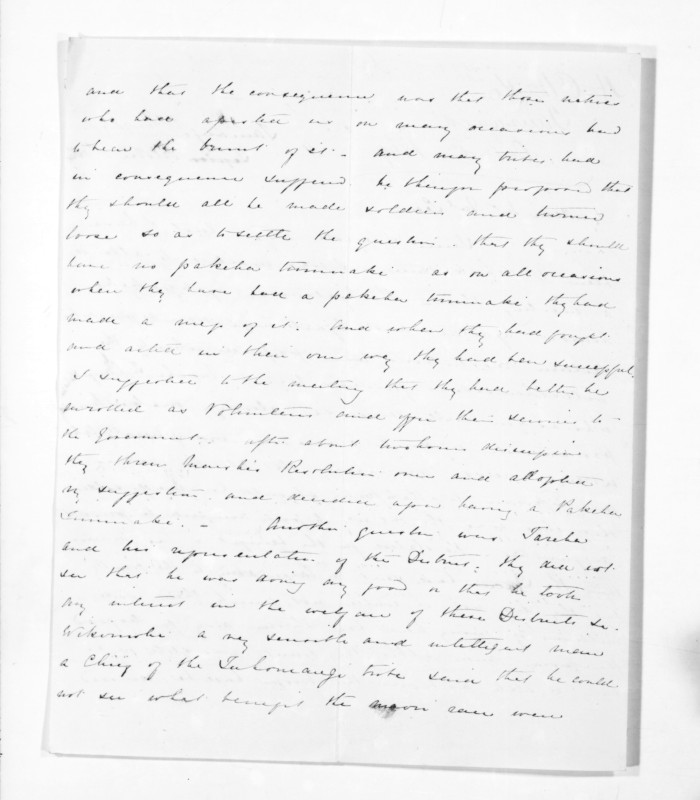 and that the consequence was that those natives
who had assisted us on many occasions had
to bear the brunt of it - and many tribes had
in consequence suffered. he therefore proposed that
they should all be made soldiers and turned
loose so as to settle the question. that they should
have no pakeha tumuaki as on all occasions
when they have had a pakeha tumuaki they had
made a mess of it. And when they had fought
and acted in their own way they had been successful.
I suggested to the meeting that they had better be
enrolled as Volunteers and offer their services to
the Government. after about two hours discussion
they threw Resolution over and adopted
my suggestion and decided upon having a Pakeha
Tumuaki. - Another question was Tareha
and his representation of the District; they did not
see that he was doing any good or that he took
any interest in the welfare of these Districts &c.
a very sensible and intelligent man
a Chief of the tribe said that he could
not see what benefit the maori race were